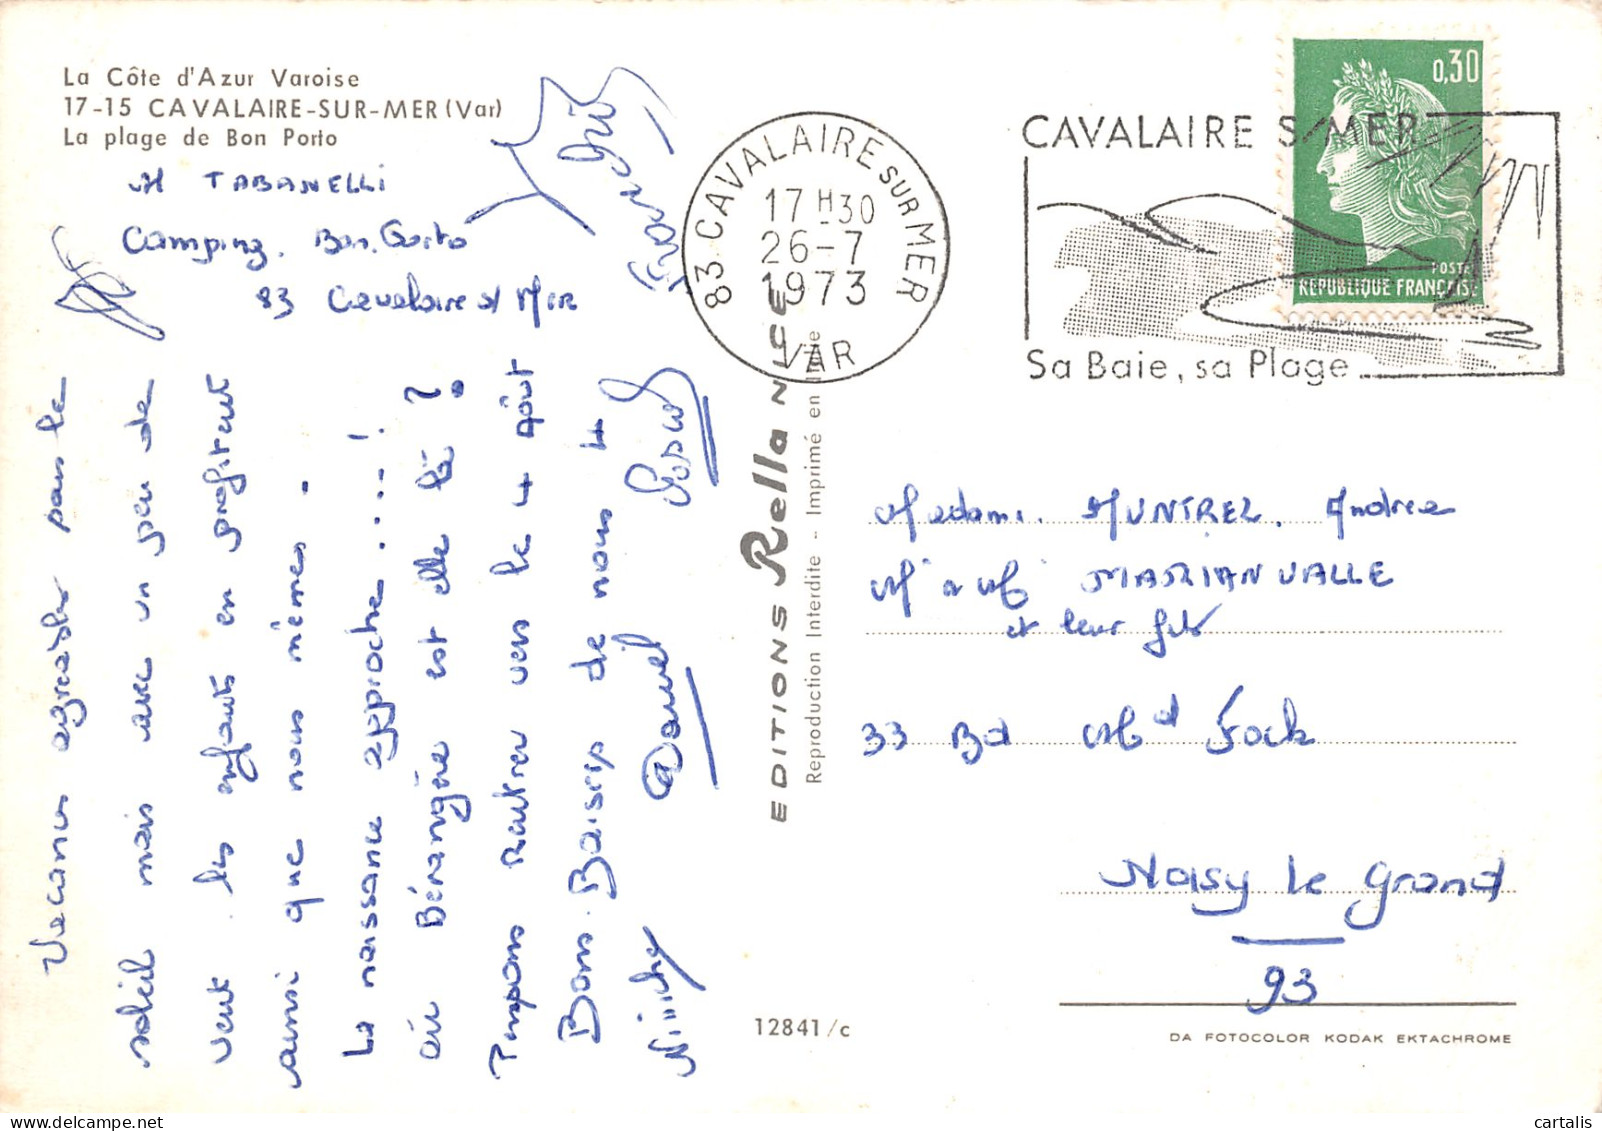 La Côte d'Azur Varoise
17-15 CAVALAIRE-SUR-MER (Var)
La plage de Bon Porto
M TABANELLI
Camping. Bon. Porto
83 Cavalaire s/ Mer
Vacances agréables sous le
soleil mais avec un peu de
vent. les enfants en profitent
ainsi que nous mêmes -
La naissance approche ....!
où Bérangère est elle là ?
Pensons rentrer vers le 4 Aôut
Bons. Baisers de nous 4
Daniel
83 CAVALAIRE SUR MER
17 H 30
26-7
1973
VAR
CAVALAIRE S/MER
Sa Baie, sa Plage
0,30
POSTES
REPUBLIQUE FRANÇAISE
EDITIONS Rella NICE
Reproduction Interdite - Imprimé en Italie
Madame. MUNTREZ. Andrée
M et Me MARIANVALLE
et leur fils
33 Bd Mal Foch
Noisy le Grand
93
12841/c
DA FOTOCOLOR KODAK EKTACHROME
cartalis